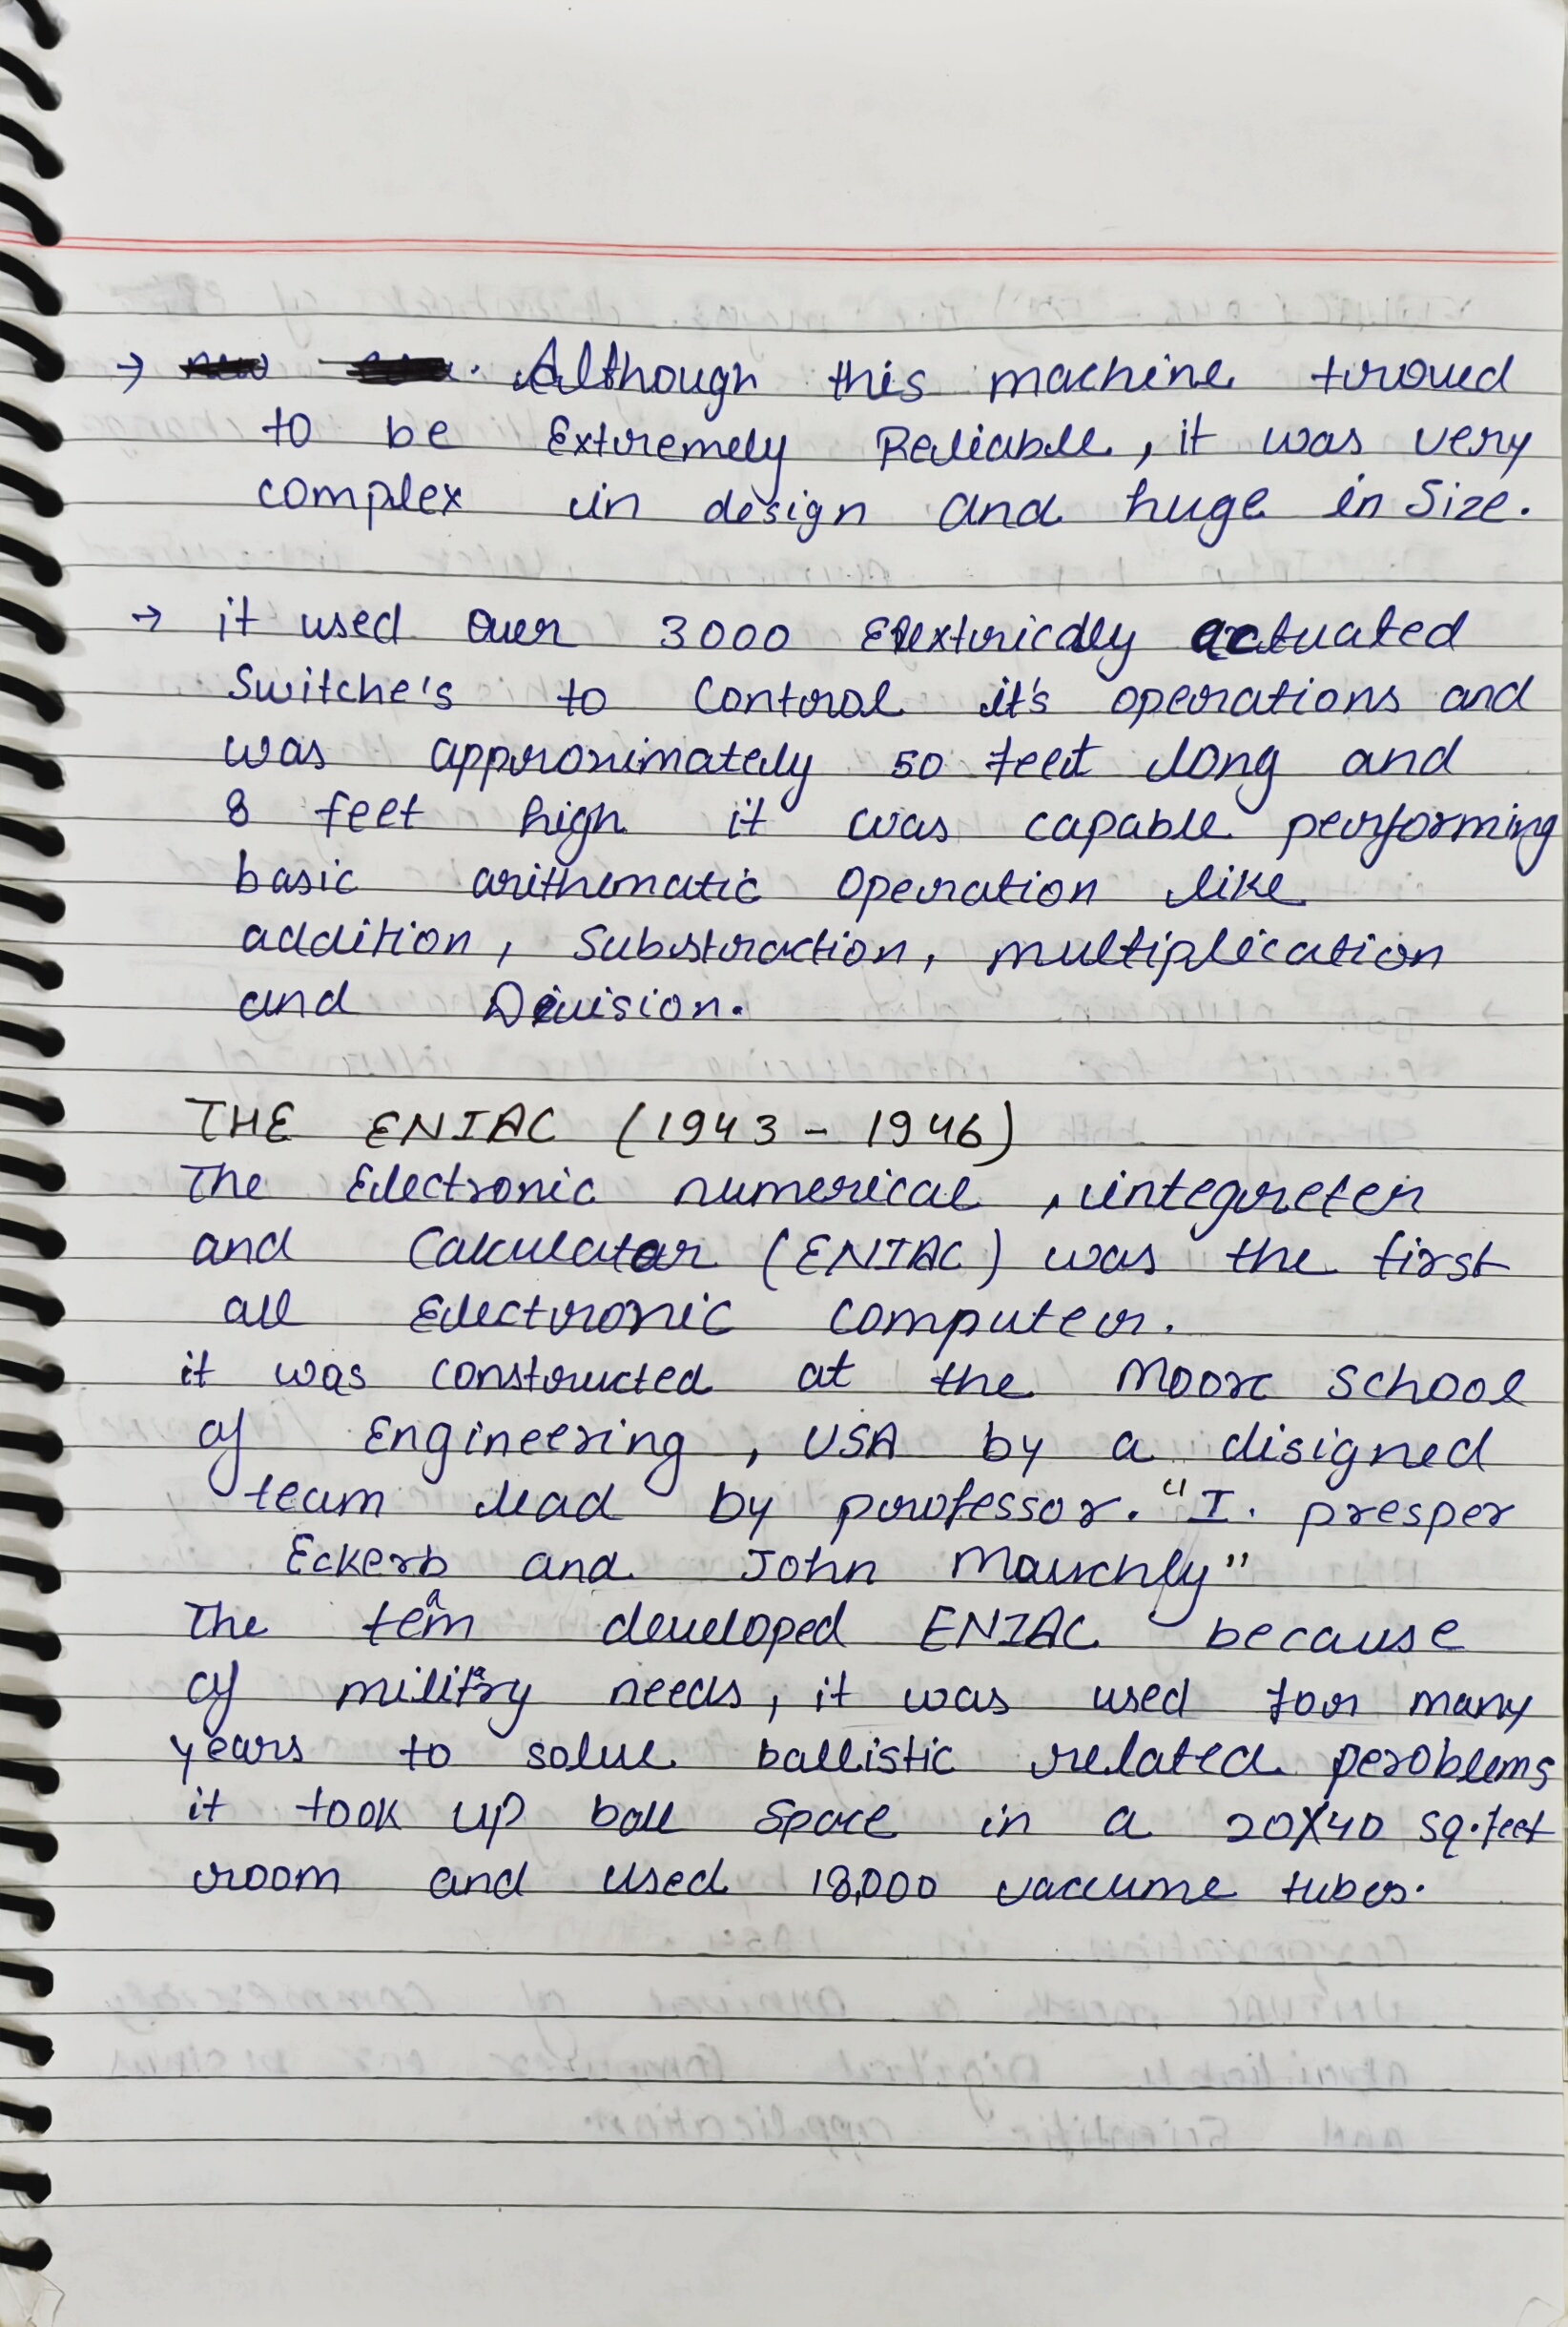 → Although this machine turoued
to be Extremely Reliable, it was very
complex in design and huge in Size.
→ it used Over 3000 Elextricdly actuated
Switche's to Control it's operations and
was approximately 50 feet long and
8 feet high it was capable performing
basic arithmatic Operation like
addition, Substraction, multiplication
and Division.
THE ENIAC (1943 - 1946)
The Electronic numerical, integreter
and Calculator (ENIAC) was the first
all Electronic Computer.
it was constructed at the Moore School
of Engineering, USA by a disigned
team lead by professor. "I. presper
Eckerb and John Mauchly"
The team developed ENIAC because
of military needs, it was used for many
years to solve ballistic related peroblems
it took up ball Space in a 20X40 sq.feet
room and used 18,000 vaccume tubes.